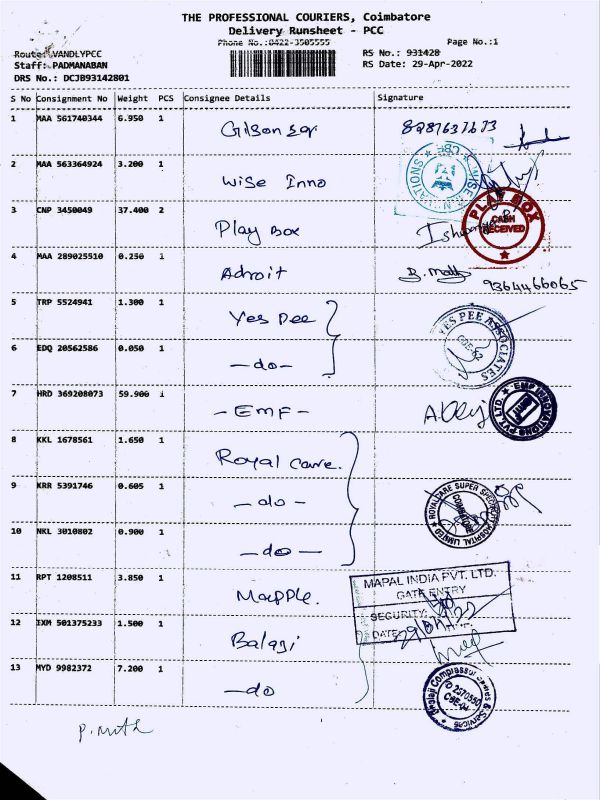 THE PROFESSIONAL COURIERS, Coimbatore
Delivery Runsheet - PCC
Phone No.:0422-3505555
Page No.:1
Route: VANDLYPCC
RS No.: 931428
Staff: PADMANABAN
RS Date: 29-Apr-2022
DRS No.: DCJB93142801
S No Consignment No Weight PCS Consignee Details Signature
1 MAA 561740344 6.950 1 Gilson sqr 8287637673
2 MAA 563364924 3.200 1 Wise Inno
3 CNP 3450049 37.400 2 Play Box
PLAY BOX
CASH
RECEIVED
4 MAA 289025510 0.250 1 Adroit
9364466065
5 TRP 5524941 1.300 1 Yes Pee
YES PEE ASSOCIATES
6 EDQ 20562586 0.050 1 -do-
7 HRD 369208073 59.900 1 -EMF-
EMF INNOVATIONS PVT. LTD.
8 KKL 1678561 1.650 1 Royal care.
9 KRR 5391746 0.605 1 -do-
ROYALCARE SUPER SPECIALITY HOSPITAL LIMITED
COIMBATORE
10 NKL 3010802 0.900 1 -do-
11 RPT 1208511 3.850 1 Mapple.
MAPAL INDIA PVT. LTD.
GATE ENTRY
SECURITY:
DATE:
12 IXM 501375233 1.500 1 Balagi
13 MYD 9982372 7.200 1 -do
Balaji Compressor Sales & Services
2570550
CBE-04